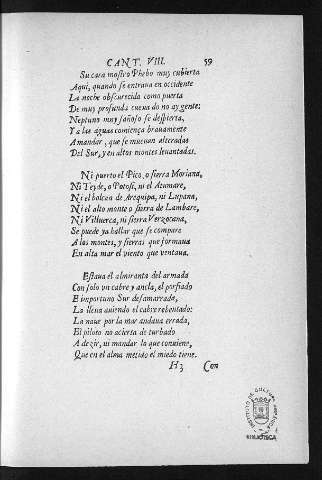 CANT. VIII. 59
Su cara mostro Phebo muy cubierta
Aqui, quando se entraua en occidente
La noche obscurecida como puerta
De muy profunda cueua do no ay gente:
Neptuno muy sañoso se despierta,
Y a las aguas comiença brauamente
A mandar, que se mueuan alteradas
Del Sur, y en altos montes leuantadas.
Ni puerto el Pico, o sierra Moriana,
Ni Teyde, o Potosi, ni el Atamare,
Ni el bolcan de Arequipa, ni Lupana,
Ni el alto monte o sierra de Lambare,
Ni Villuerca, ni sierra Verzocana,
Se puede ya hallar que se compare
A los montes, y sierras que formaua
En alta mar el viento que ventaua.
Estaua el almiranta del armada
Con solo vn cabre y ancla, el porfiado
E importuno Sur desamarrada,
La lleua auiendo el cabre rebentado:
La naue por la mar andaua errada,
El piloto no acierta de turbado
A dezir, ni mandar lo que conuiene,
Que en el alma metido el miedo tiene.
H3 Con
INSTITUTO DE CULTURA HISPANICA
BIBLIOTECA